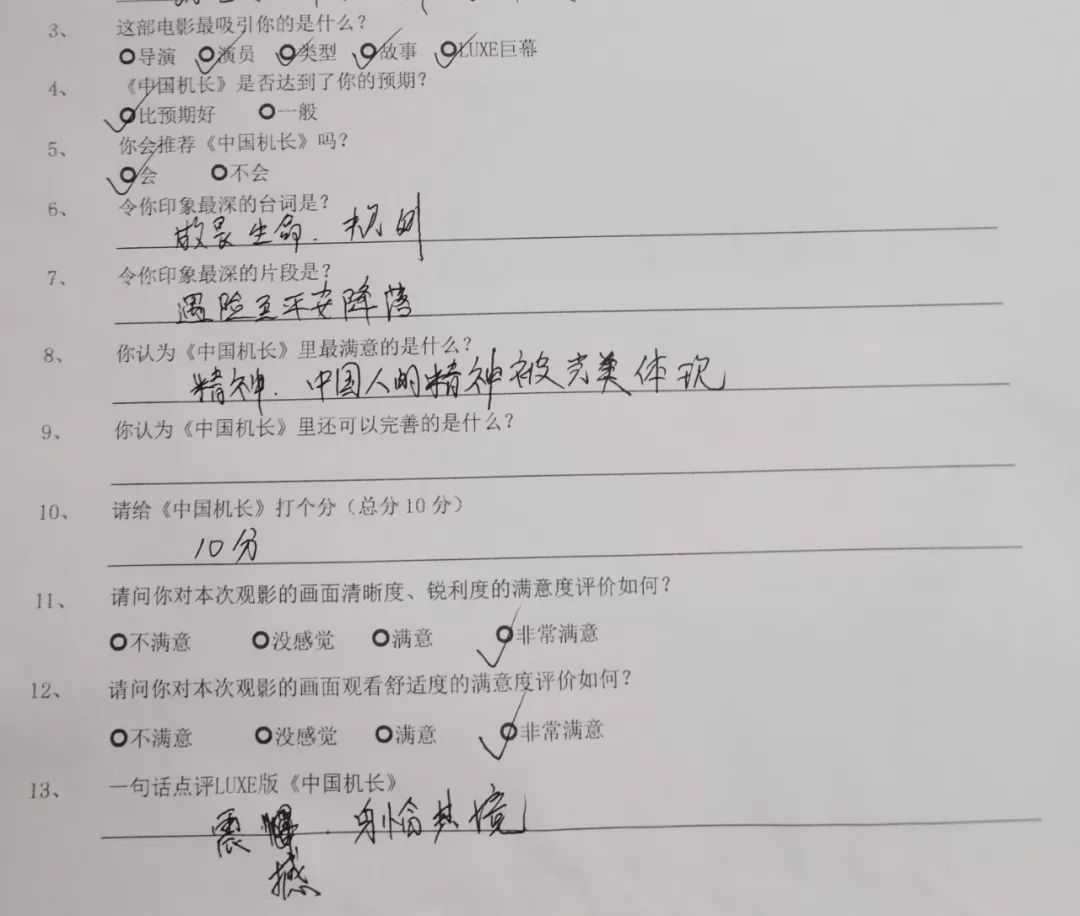 3、 这部电影最吸引你的是什么？
导演 演员 类型 故事 LUXE巨幕
4、 《中国机长》是否达到了你的预期？
比预期好 一般
5、 你会推荐《中国机长》吗？
会 不会
6、 令你印象最深的台词是？
敬畏生命. 规则
7、 令你印象最深的片段是？
遇险至平安降落
8、 你认为《中国机长》里最满意的是什么？
精神. 中国人的精神被完美体现
9、 你认为《中国机长》里还可以完善的是什么？
10、 请给《中国机长》打个分（总分10分）
10分
11、 请问你对本次观影的画面清晰度、锐利度的满意度评价如何？
不满意 没感觉 满意 非常满意
12、 请问你对本次观影的画面观看舒适度的满意度评价如何？
不满意 没感觉 满意 非常满意
13、 一句话点评LUXE版《中国机长》
震 . 身临其境
撼